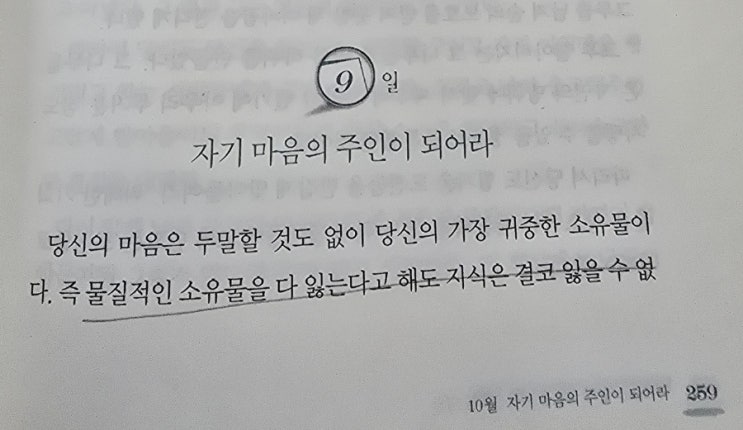 9 일
자기 마음의 주인이 되어라
당신의 마음은 두말할 것도 없이 당신의 가장 귀중한 소유물이
다. 즉 물질적인 소유물을 다 잃는다고 해도 지식은 결코 잃을 수 없
10월 자기 마음의 주인이 되어라 259